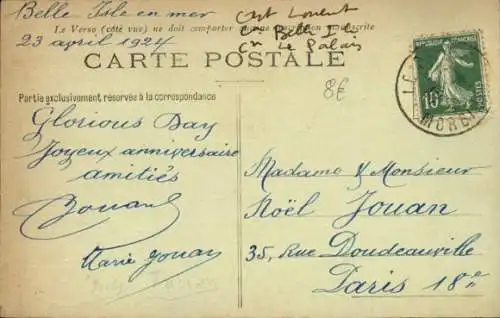 Belle Isle en mer
23 avril 1924
Le Verso (côté vue) ne doit comporter
Belle I
Le Palais
CARTE POSTALE
8€
RÉPUBLIQUE FRANÇAISE
10
POSTES
MORBI
Partie exclusivement réservée à la correspondance
Glorious Day
Joyeux anniversaire
amitiés
Jouan
Marie Jouan
Madame & Monsieur
Noël Jouan
35, Rue Doudeauville
Paris 18e